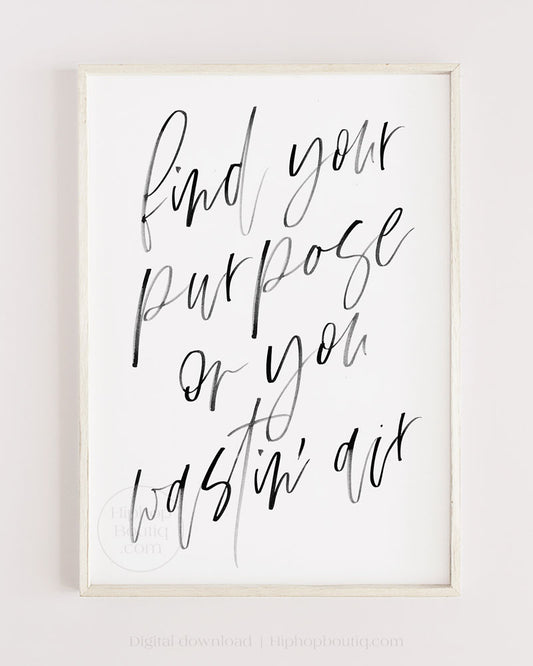 find your
purpose
or you
wastin' air
Hiphop
Boutiq
.com
Digital download | Hiphopboutiq.com